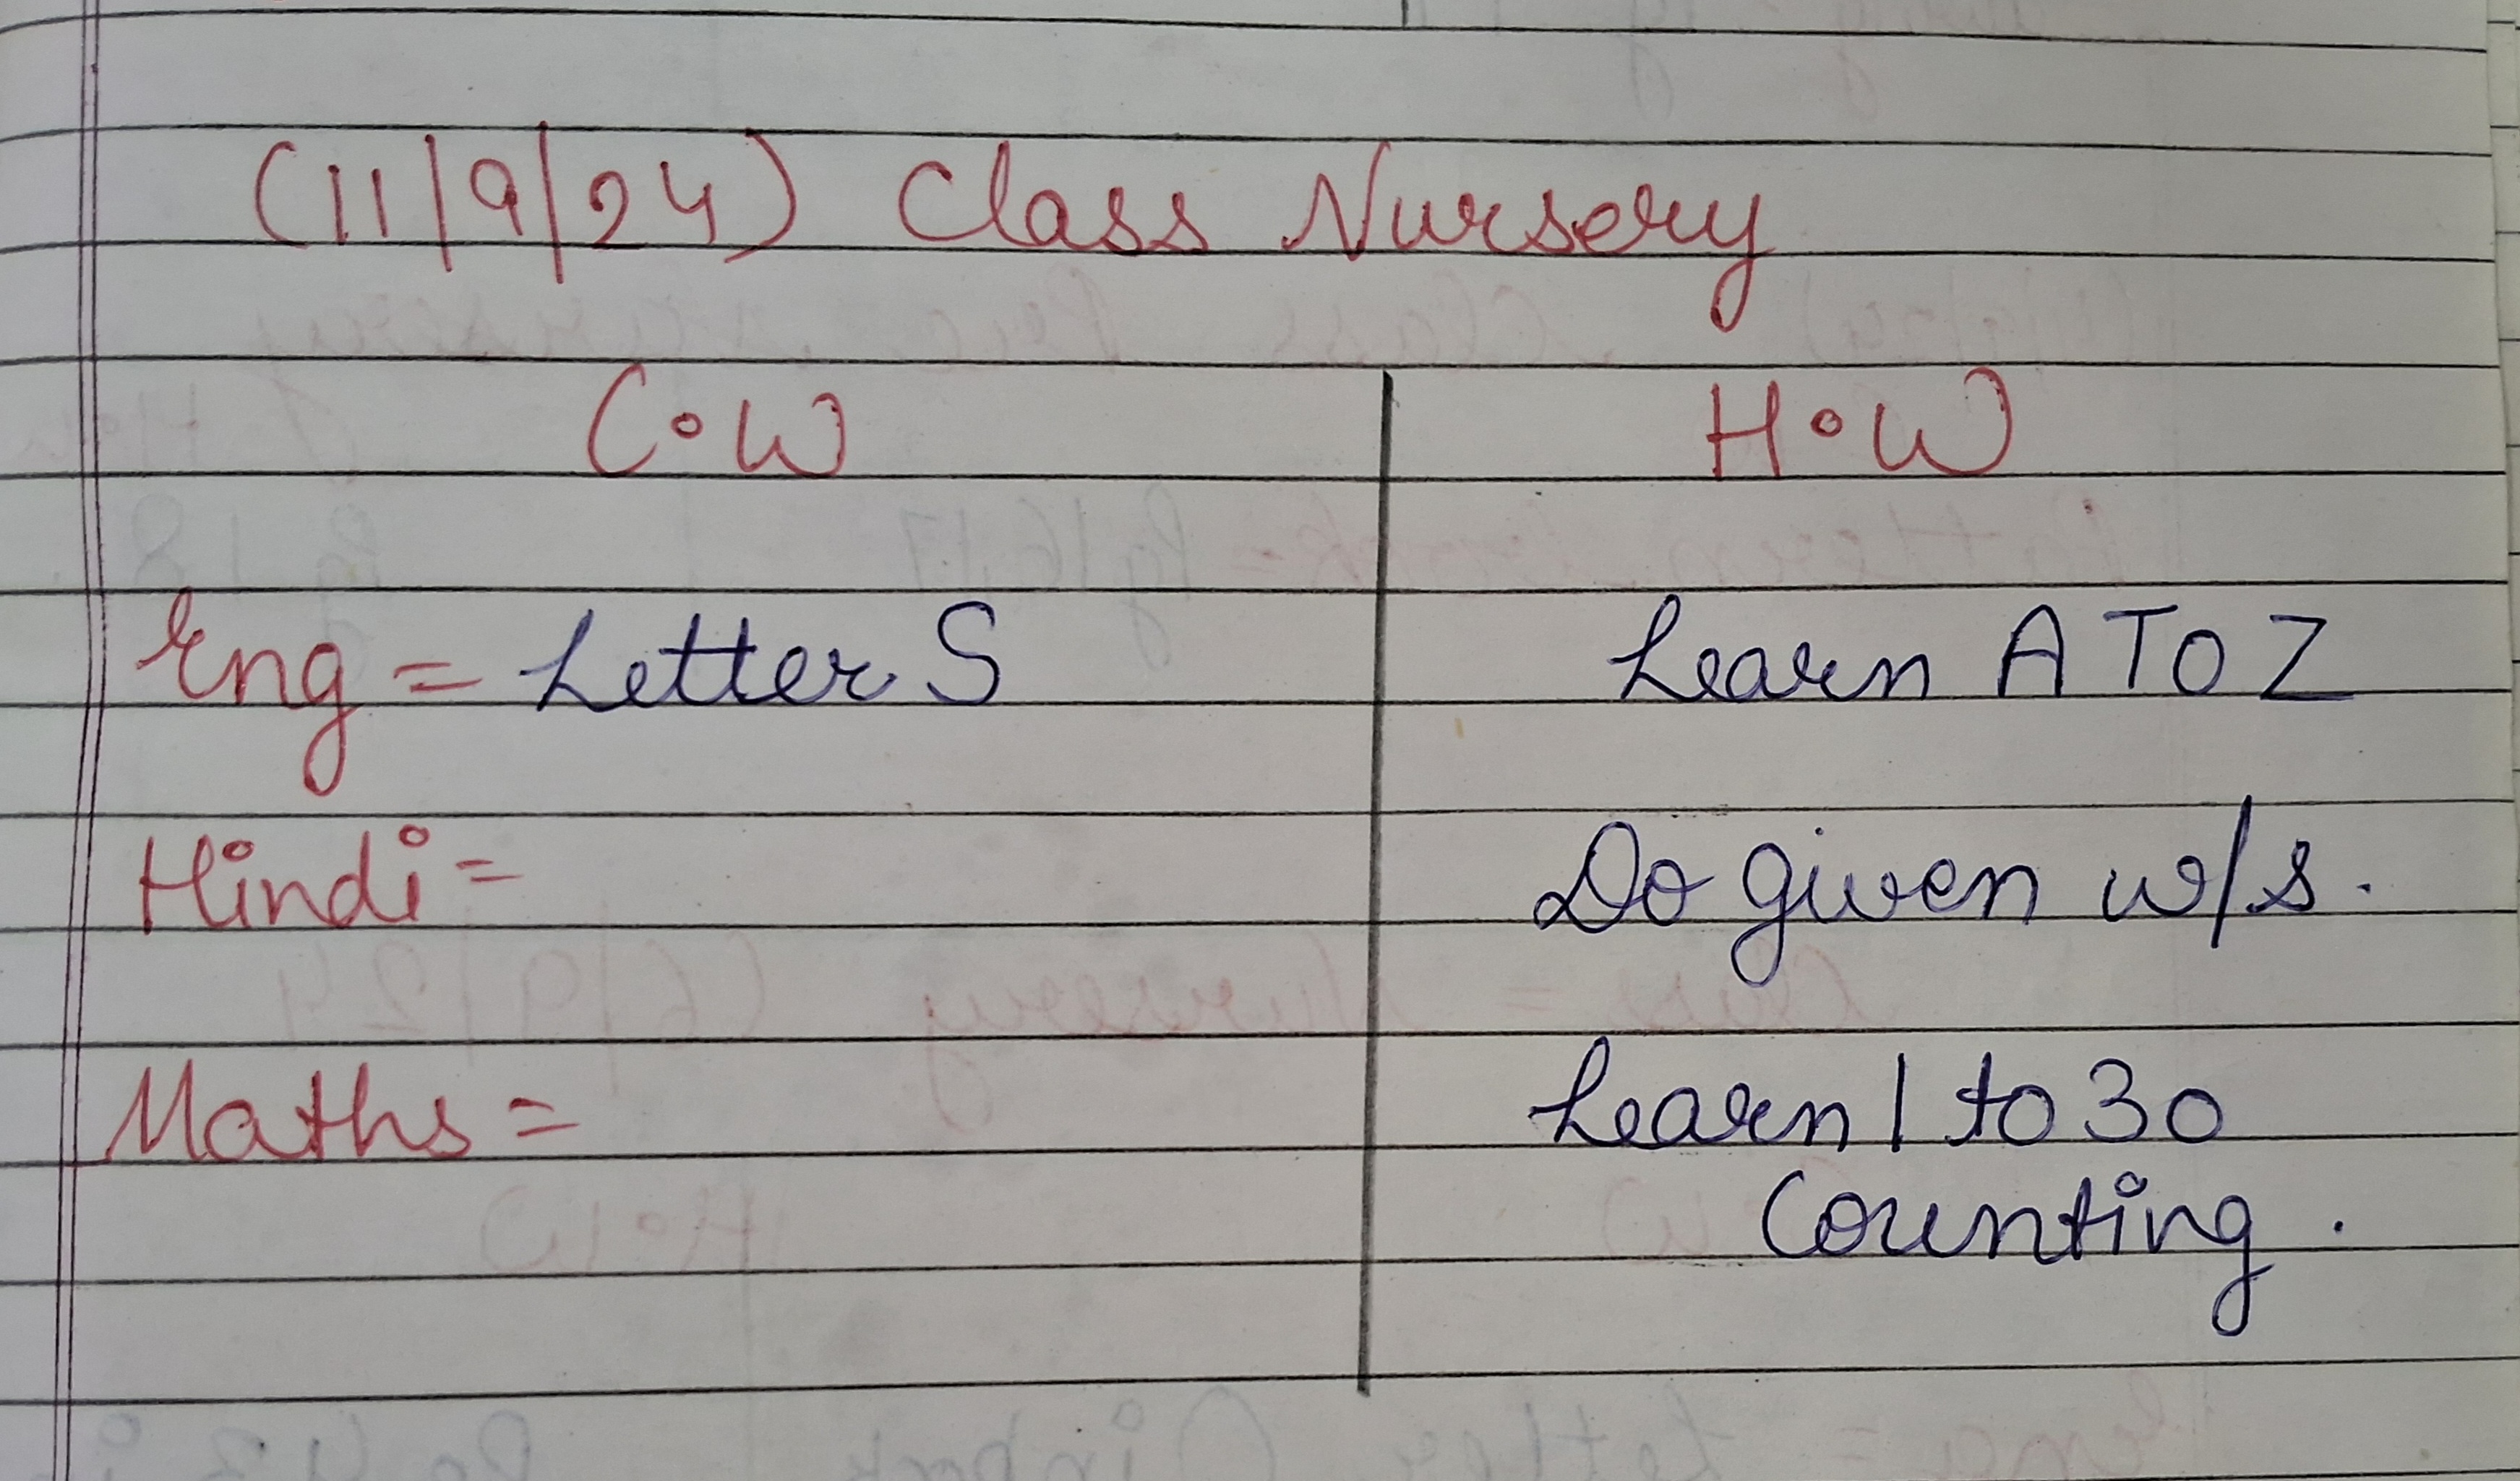 (11/9/24) Class Nursery
C.W H.W
Eng = Letter S Learn A TO Z
Hindi = Do given w/s.
Maths = Learn 1 to 30
Counting.